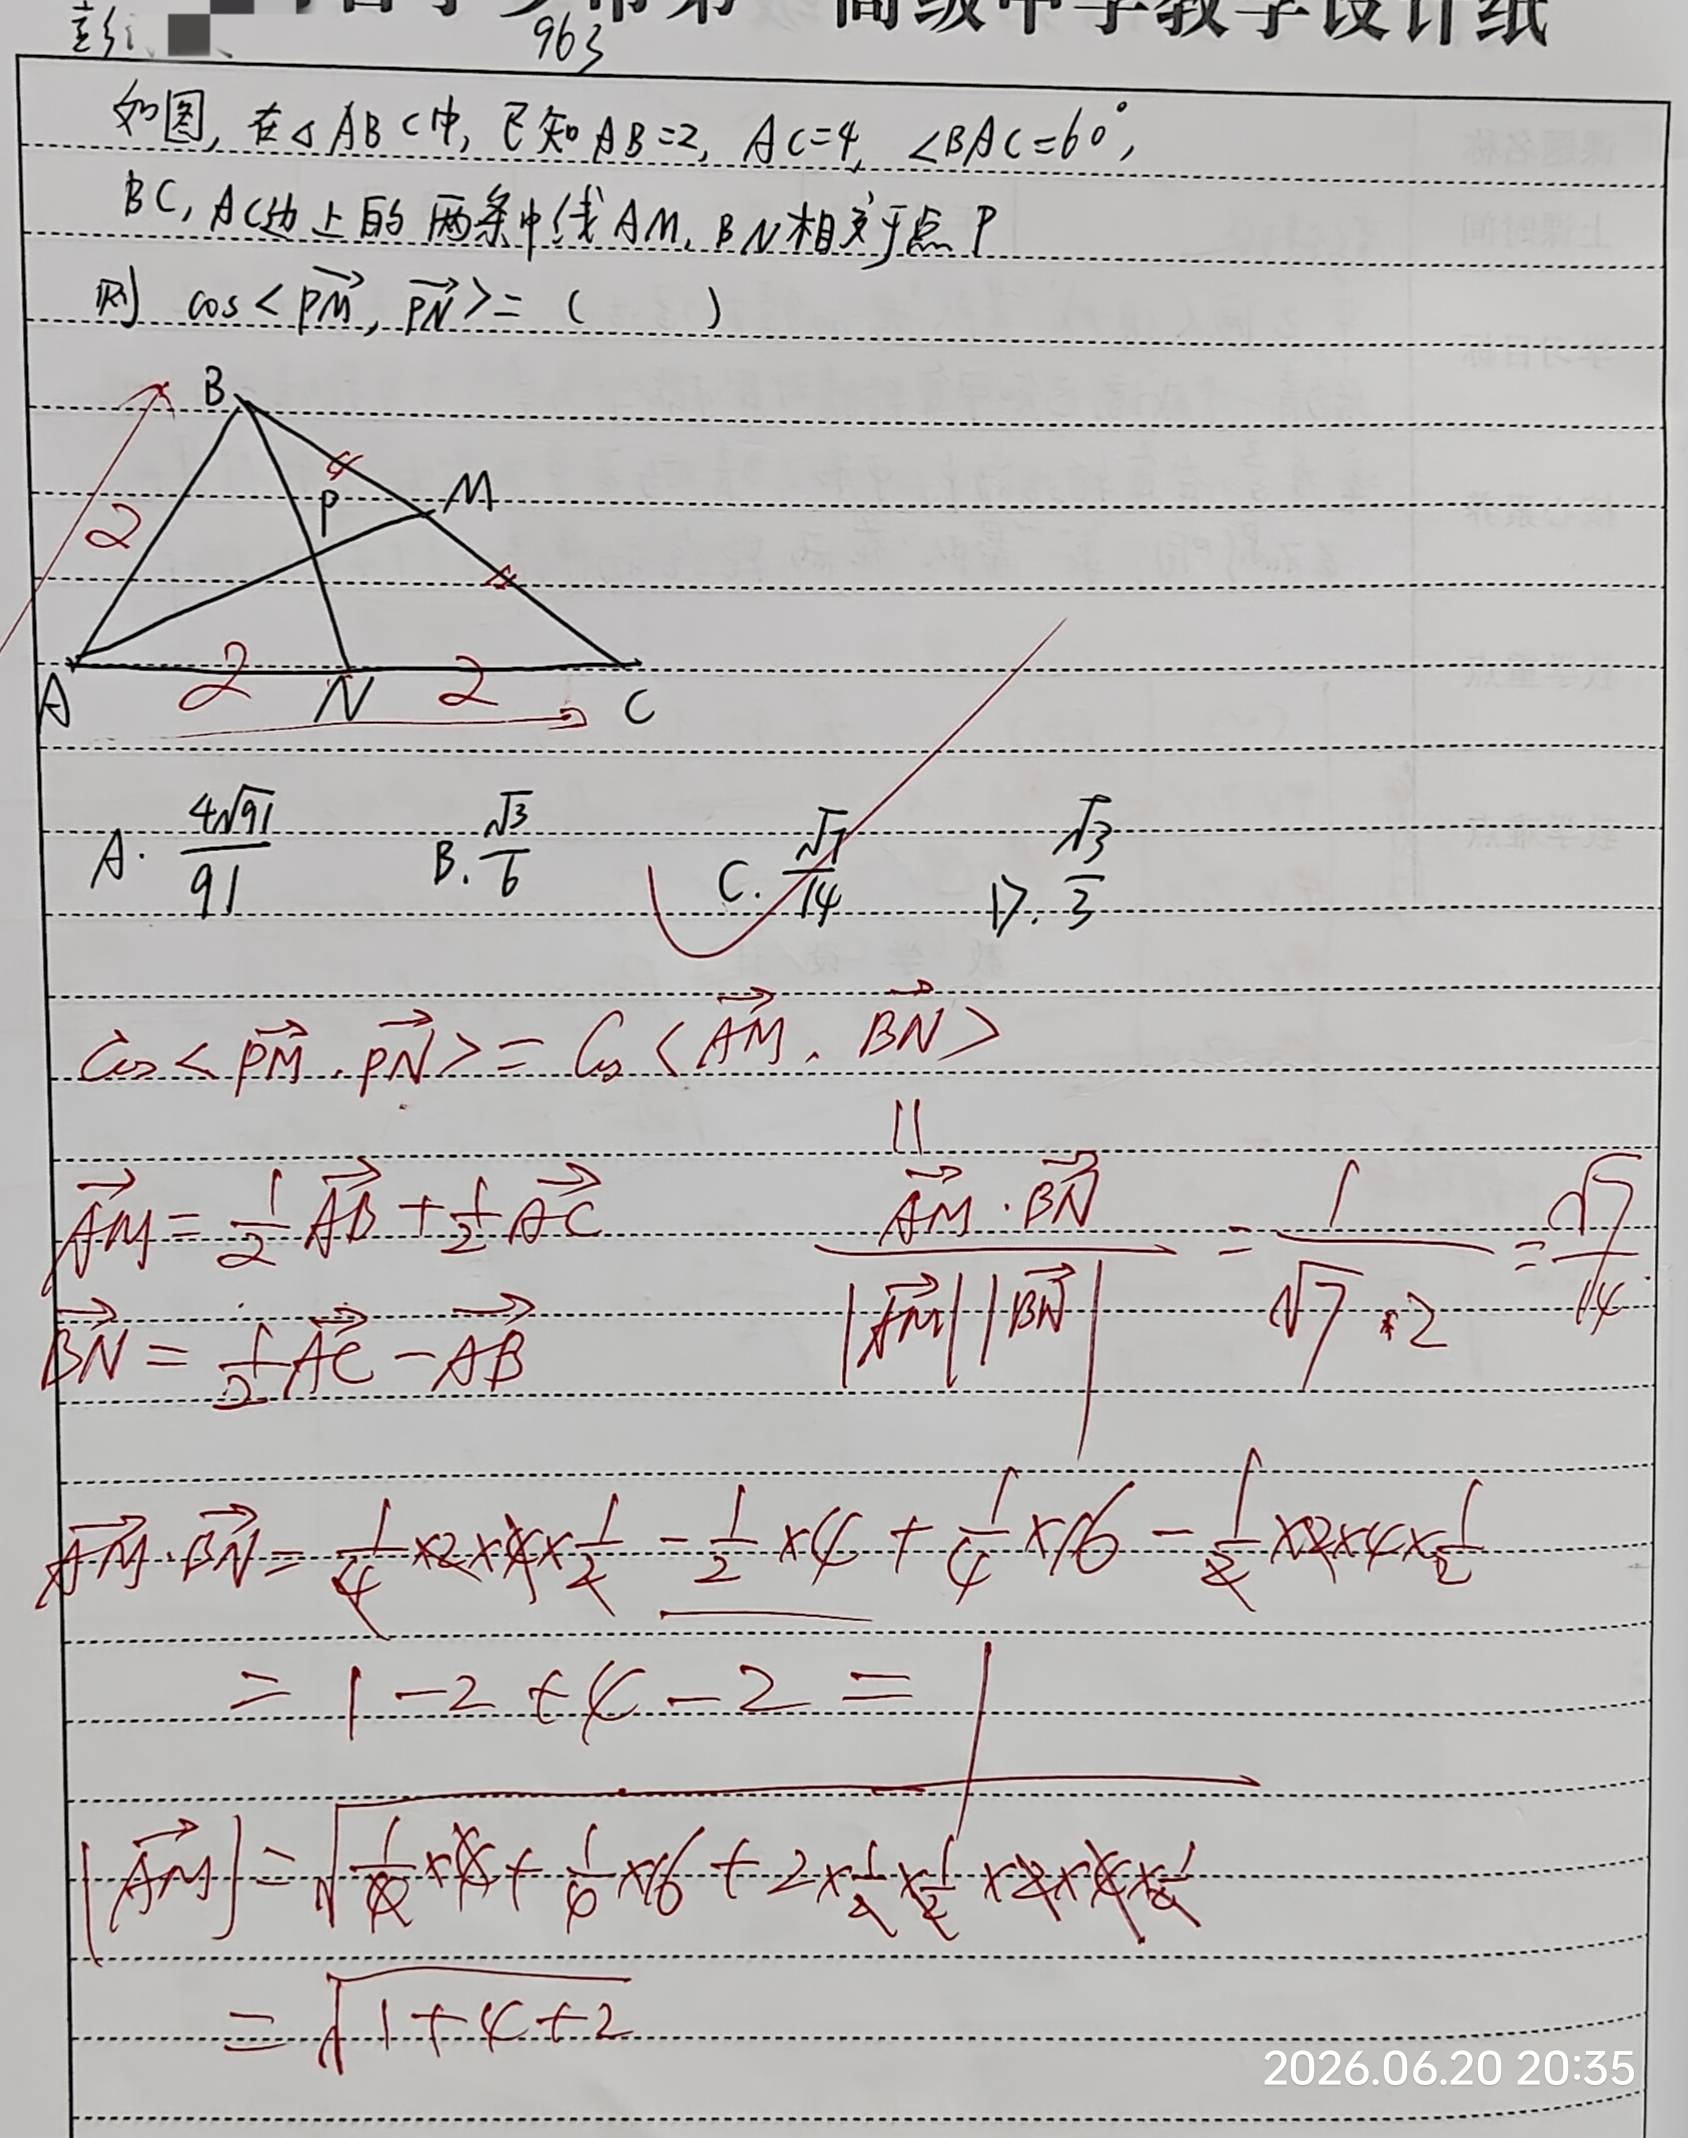 高级中学教学设计纸
963
如图, 在△ABC中, 已知AB=2, AC=4, ∠BAC=60°,
BC, AC边上的两条中线AM, BN相交于点P
则 cos<\overrightarrow{PM}, \overrightarrow{PN}>=( )
B
M
P
2
A
2
N
2
C
A. \frac{4\sqrt{91}}{91} B. \frac{\sqrt{3}}{6} C. \frac{\sqrt{7}}{14} D. \frac{\sqrt{3}}{3}
Cos<\overrightarrow{PM}, \overrightarrow{PN}>=Cos<\overrightarrow{AM}, \overrightarrow{BN}>
=
\overrightarrow{AM}=\frac{1}{2}\overrightarrow{AB}+\frac{1}{2}\overrightarrow{AC} \frac{\overrightarrow{AM}·\overrightarrow{BN}}{|\overrightarrow{AM}||\overrightarrow{BN}|}=\frac{1}{\sqrt{7}·2}=\frac{\sqrt{7}}{14}
\overrightarrow{BN}=\frac{1}{2}\overrightarrow{AC}-\overrightarrow{AB}
\overrightarrow{AM}·\overrightarrow{BN}=\frac{1}{4}×2×4×\frac{1}{2}-\frac{1}{2}×4+\frac{1}{4}×16-\frac{1}{2}×2×4×\frac{1}{2}
=1-2+4-2=1
|\overrightarrow{AM}|=\sqrt{\frac{1}{4}×4+\frac{1}{4}×16+2×\frac{1}{2}×\frac{1}{2}×2×4×\frac{1}{2}}
=\sqrt{1+4+2}
2026.06.20 20:35